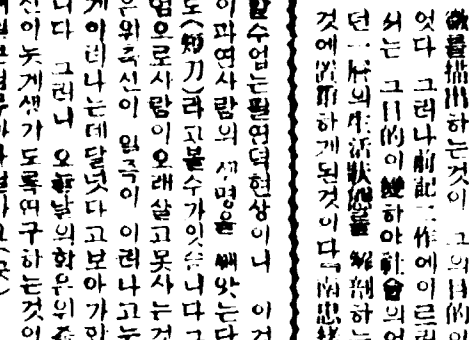 描出하는것이 그의目的이
엇다 그러나前記二作에이르러
서는 그目的이變하야社會의어
던一層의生活狀態를 解剖하는
것에 하게된것이다「南忠緖
할수업는필연덕현상이니 이것
이과연사람의생명을 빼앗는단
도(短刀)라고볼수가잇슴니다그
럼으로사람이오래살고못사는것
은위축신이 일즉이 이러나고늣
게이러나는데달녓다고보아가히
니다 그러나 오늘날의학은위축
신이늣게생기도록연구하는것이